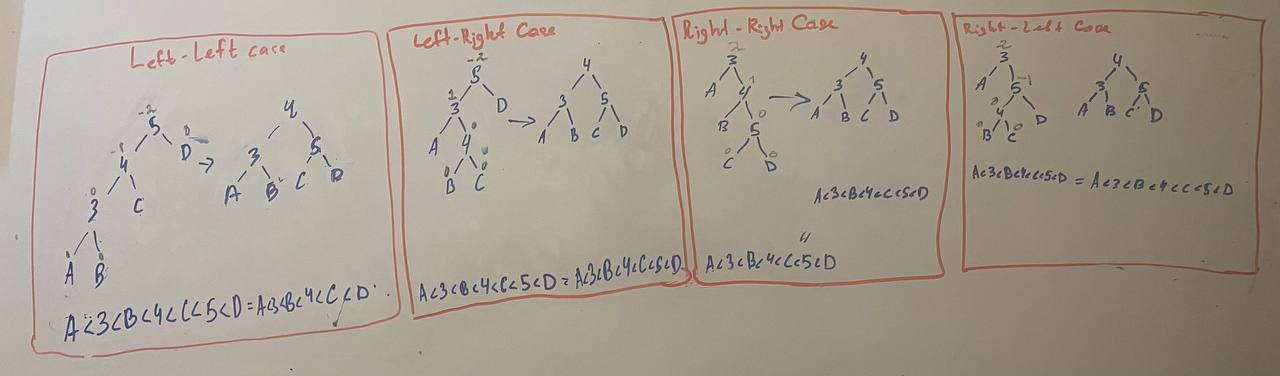 Left-Left case
-2
5
0
-1
D
4
0
3
C
0
0
A B
→
4
3 5
A B C D
A<3<B<4<C<5<D=A<3<B<4<C<D
Left-Right Case
-2
5
1
3
D
0
A 4
0 0
B C
→
4
3 5
A B C D
A<3<B<4<C<5<D=A<3<B<4<C<5<D
Right-Right Case
2
3
1
A 4
0
B 5
0 0
C D
→
4
3 5
A B C D
A<3<B<4<C<5<D
"
A<3<B<4<C<5<D
Right-Left Case
2
3
-1
A 5
0
4 D
0 0
B C
4
3 5
A B C D
A<3<B<4<C<5<D = A<3<B<4<C<5<D